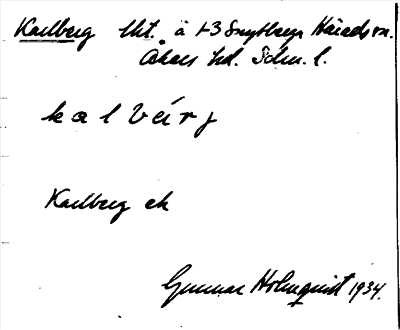 Karlberg lht. å 1-3 Snytberga Härads sn.
Åkers hd. Södm. l.
kalbärj
Karlberg ek
Gunnar Holmquist 1934.